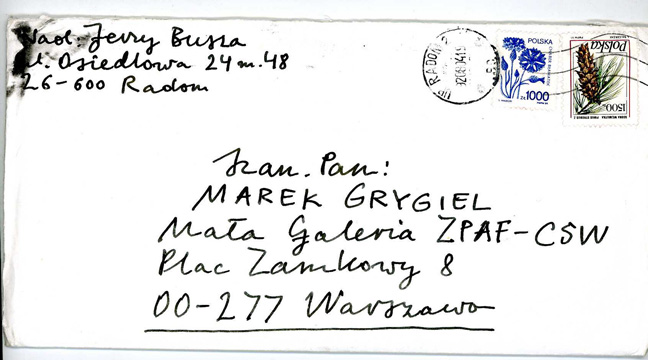 Nad. Jerzy Busza
ul. Osiedlowa 24 m. 48
26-600 Radom
RADOM
POLSKA
ZŁ 1000
Polska
1500 zł
Szan. Pan:
MAREK GRYGIEL
Mała Galeria ZPAF-CSW
Plac Zamkowy 8
00-277 Warszawa